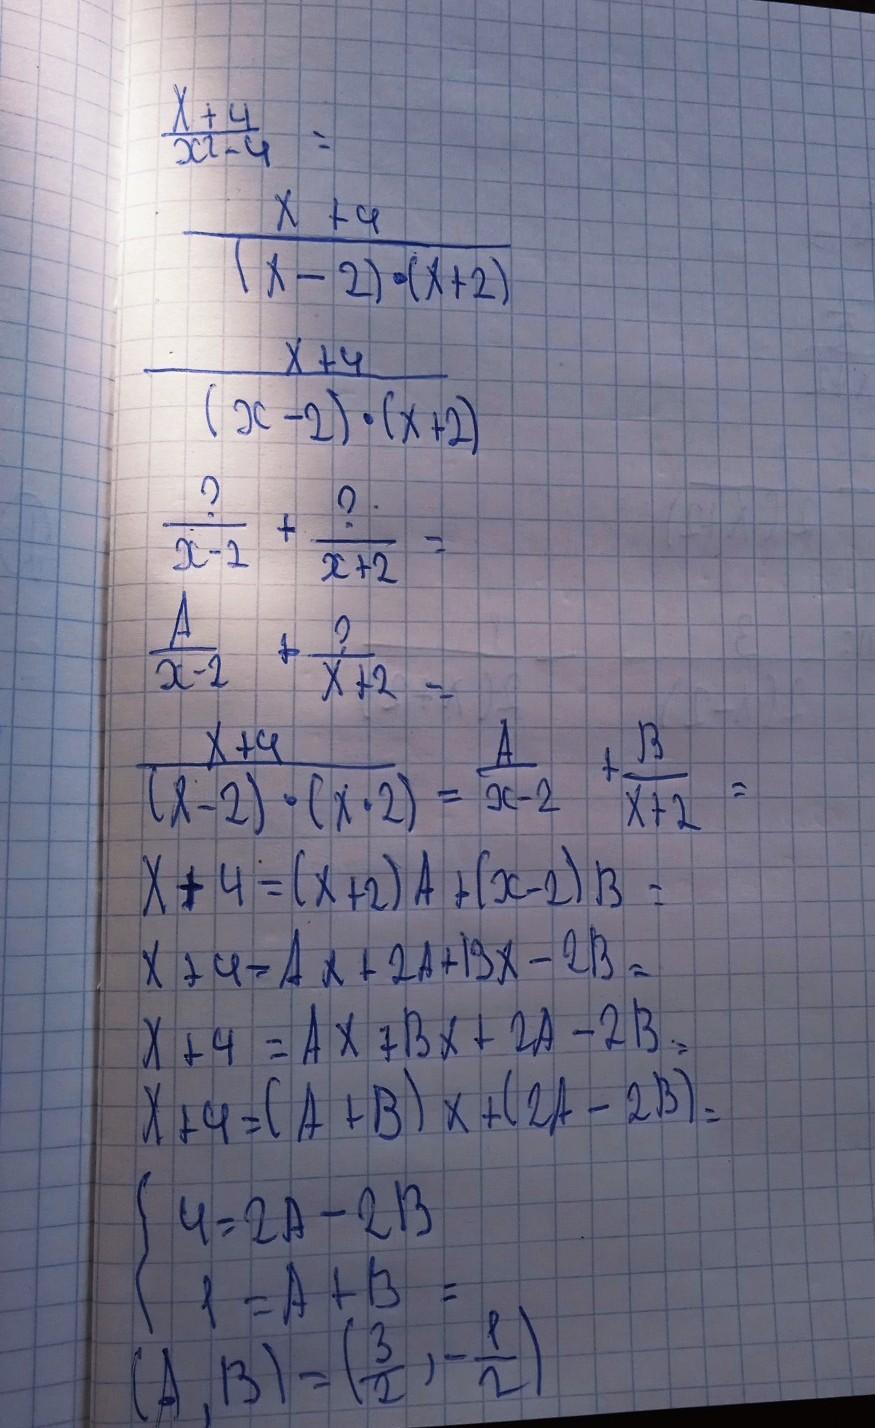 x+4
x²-4 =
x +4
(x-2)•(x+2)
x+4
(x-2)•(x+2)
? + ?
x-2 x+2 =
A + ?
x-2 x+2 =
x+4 A + B
(x-2)•(x•2) = x-2 x+2 =
x+4=(x+2)A+(x-2)B =
x+4=Ax+2A+Bx-2B=
x+4 =Ax+Bx+2A-2B=
x+4=(A+B)x+(2A-2B)=
{ 4=2A-2B
1=A+B =
(A,B)=(3/2,-1/2)